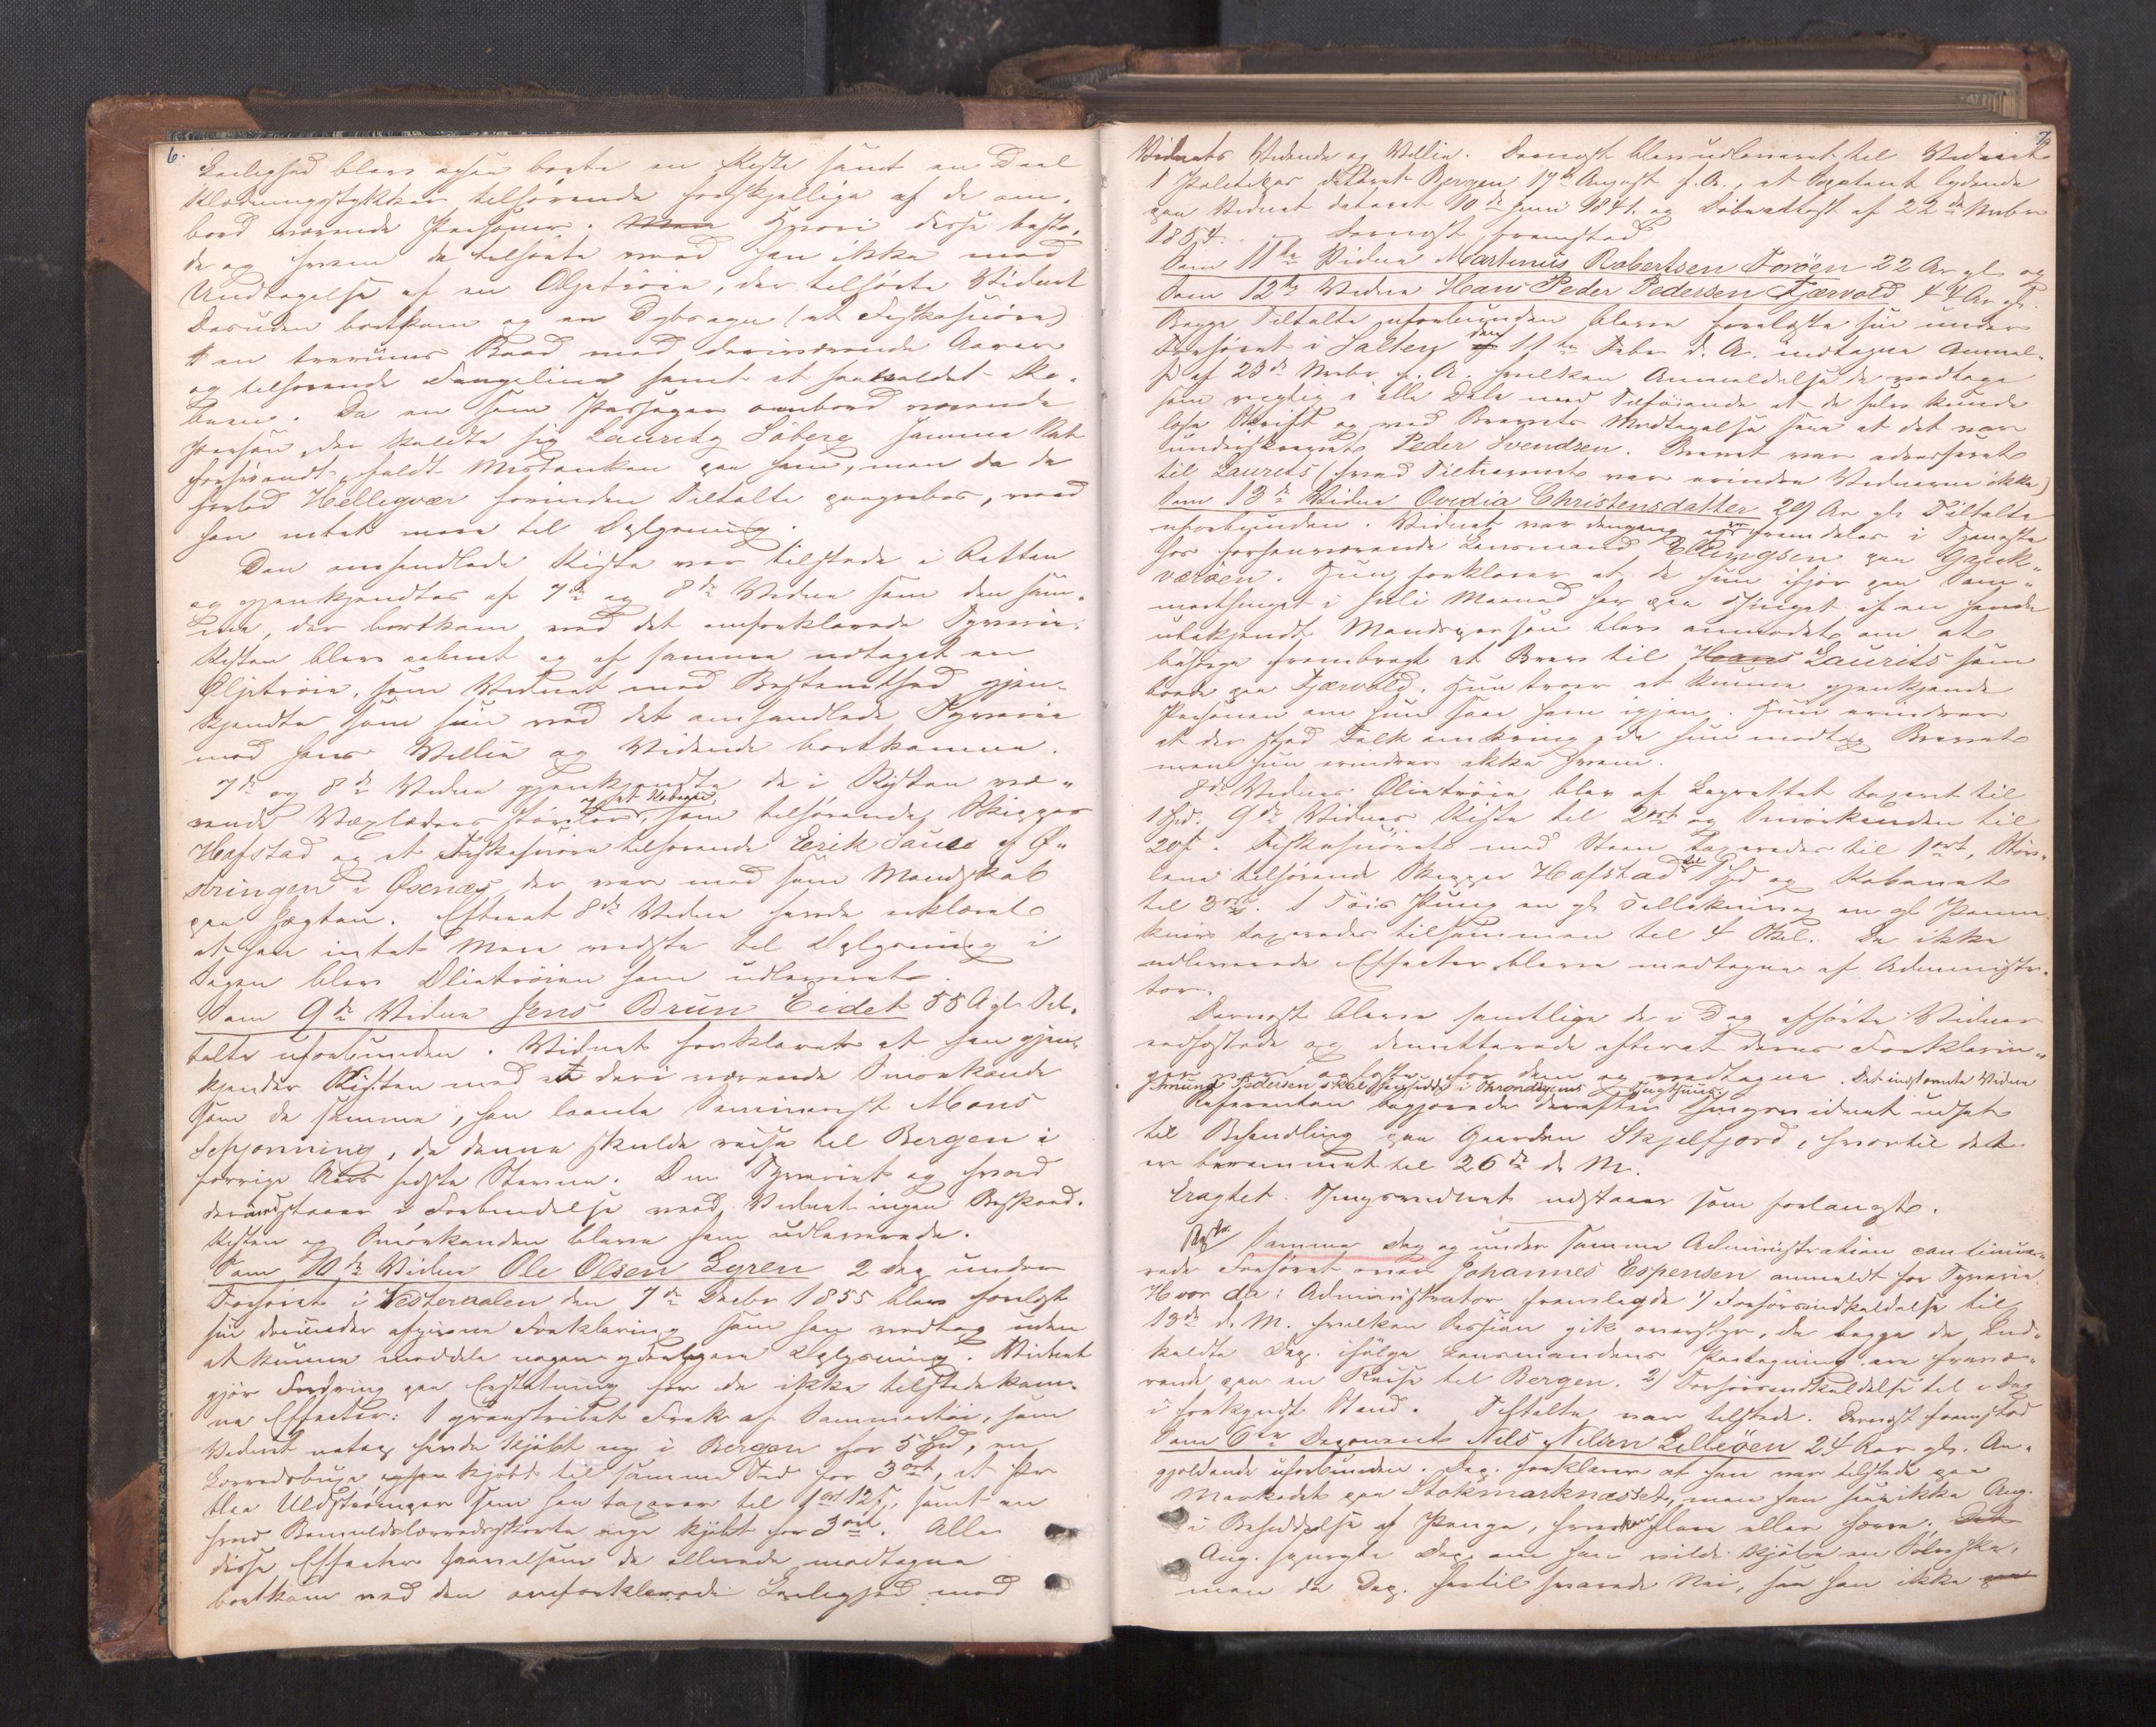 6.
Leilighed blev ogsaa borte en Kiste samt en Deel
Klædningsstykker tilhørende forskjellige af de om-
bord værende Personer. Men Hvori disse besto-
de og hvem de tilhørte veed han ikke med
Undtagelse af en Oljetrøie, der tilhørte Vidnet
Desuden bortkom og en Dybsagn (et Fiskesnøre)
en treroms Baad med deriværende Aarer
og tilhørende Fangeline samt et saakaldet
Da en som Passager ombord værende
Person, der kaldte sig Lauritz Söberg samme Nat
forsvandt, faldt Mistanken paa ham, men da de
forlod Helligvær forinden Tiltalte paagrebes, veed
han intet mere til Oplysning.
Den omhandlede Kiste var tilstede i Retten
og gjenkjendtes af 7de og 8de Vidne som den sam-
me, der bortkom ved det omforklarede Tyverie.
Kisten blev aabnet og af samme udtaget en
Oljetrøie, som Vidnet med Bestemthed gjen-
kjendte som sin ved det omhandlede Tyverie
mod hans Villie og Vidende bortkomne.
7de og 8de Vidne gjenkjendte de i Kisten væ-
rende Værlæders Støvler, som tilhørende Skipper
Hafstad og et Fiskesnøre tilhørende Erik af Ø-
i Øxnæs, der var med som Mandskab
paa Jægten. Efterat 8de Vidne havde erklæret
at han intet mere vidste til Oplysning i
Sagen blev Olietrøien ham udleveret.
Som 9de Vidne Jens Brun Eidet 55 A gl. Til-
talte uforbunden. Vidnet forklarede at han gjen-
kjender Kisten med et deri værende Smørkande
som de samme, han laante Seminarist Mons
Schjønning, da denne skulde reise til Bergen i
forrige Aars sidste Stevne. Om Tyveriet og hvad
dermed staaer i Forbindelse veed Vidnet ingen Beskeed.
Kisten og Smørkanden bleve ham udleverede.
Som 10de Vidne Ole Olsen Lyren 2 Dag under
Forhøret i Vesteraalen den 7de Decbr 1855 blev forelagt
sin derunder afgivne Forklaring som han vedtog uden
at kunne meddele nogen yderligere Oplysning. Vidnet
gjør Fordring paa Erstatning for de ikke tilstedekom-
ne Effecter: 1 grønstribet Frak af Sommertøi, som
Vidnet havde kjøbt ny i Bergen for 5 Spd, en
Lærredsbuxe kjøbt til samme Tid for 3 ort, et Par
blaa Uldstrømper som han taxerer til 1 ort 12 s, samt en
hvid Bomuldslærredsskjorte nye kjøbt for 3 ort. Alle
disse Effecter saavelsom de allerede modtagne
bortkom ved den omforklarede Leilighed mod
7
Vidnets Vidende og Villie. Dernæst blev udleveret til Vidnet
1 Politipas dateret Bergen 17de August f. A., et Patent lydende
paa Vidnet dateret 10de Juni 1841. og Döbeattest af 22de Novbr
1854. Dernæst fremstod
Som 11te Vidne Martinus Robertsen Forøen 22 Ar gl. og
Som 12te Vidne Hans Peder Pedersen Fjærvold 44 Ar gl.
Begge Tiltalte uforbunden bleve forelæste sin under
Forhøret i Salten den 11te Febr d. A. indtagne Anmel-
se af 23de Novbr f. A. hvilken Anmeldelse de vedtage
som rigtig i alle Dele med Tilføiende at de selv kunde
læse Skrift og ved Brevets Modtagelse saae at det var
underskrevet Peder Svendsen. Brevet var adresseret
til Laurits (hvad Tilnavnet var erindre Vidnerne ikke)
Som 13de Vidne Ovidia Christensdatter 29 Ar gl. Tiltalte
uforbunden. Vidnet var dengang og er fremdeles i Tjeneste
hos forhenværende Lensmand Ellingsen paa Gauk-
værøen. Hun forklarer at da hun ifjor paa Som-
merthinget i Juli Maaned var paa Thinget af en hende
ubekjendt Mandsperson blev anmodet om at
besørge frembragt et Brev til Hans Laurits som
boede paa Fjærvold. Hun troer at kunne gjenkjende
Personen om hun saae ham igjen. Hun erindrer
at der stod Folk omkring, da hun modtog Brevet
men hun erindrer ikke hvem.
8de Vidnes Olietrøie blev af Lagrettet taxeret til
1 Spd. 9de Vidnes Kiste til 2 ort og Smørkanden til
20 s. Fiskesnøret med Steen taxeredes til 1 ort, Støv-
lene tilhørende Skipper Hafstad til 1 Spd og Kabaret
til 3 ort. 1 Töis Pung en gl. Tællekniv og en gl. Penne-
kniv taxeredes tilsammen til 4 Skil. De ikke
udleverede Effecter bleve modtagne af Administra-
tor.
Dernæst bleve samtlige de i Dag afhørte Vidner
eedfæstede og demitterede efterat deres Forklarin-
ger vare oplæste for dem og vedtagne. Det indstevnte Vidne
Amund Pedersen skal hensidde i Throndhjems Tugthuus.
Referenten begjærede derefter Thingsvidnet udsat
til Behandling paa Gaarden Skjelfjord, hvortil det
er berammet til 26de d. M.
Eragtet. Thingsvidnet udstaaer som forlangt.
Samme Dag og under samme Administration continue-
rede Forhøret over Johannes Espensen anmeldt for Tyverie.
Hvor da: Administrator fremlagde 1) Forhørsindkaldelse til
13de d. M. hvilken Session gik overstyr, da begge de Ind-
kaldte Dep. ifølge Lensmandens Paategning ere fravæ-
rende paa en Reise til Bergen. 2) Forhørsindkaldelse til i Dag
i forkyndt Stand. Tiltalte var tilstede. Dernæst fremstod
Som 6te Deponent Nils Nilsen Lilleöen 24 Aar gl. An-
gjeldende uforbunden. Dep. forklarer at han var tilstede paa
Markedet paa Stokmarknæsset, men han saae ikke Ang.
i Besiddelse af Penge, hverken flere eller færre. Det
Ang. spurgte Dep. om han vilde kjøbe en Sölvske,
men da Dep. hertil svarede Nei, saa han ikke